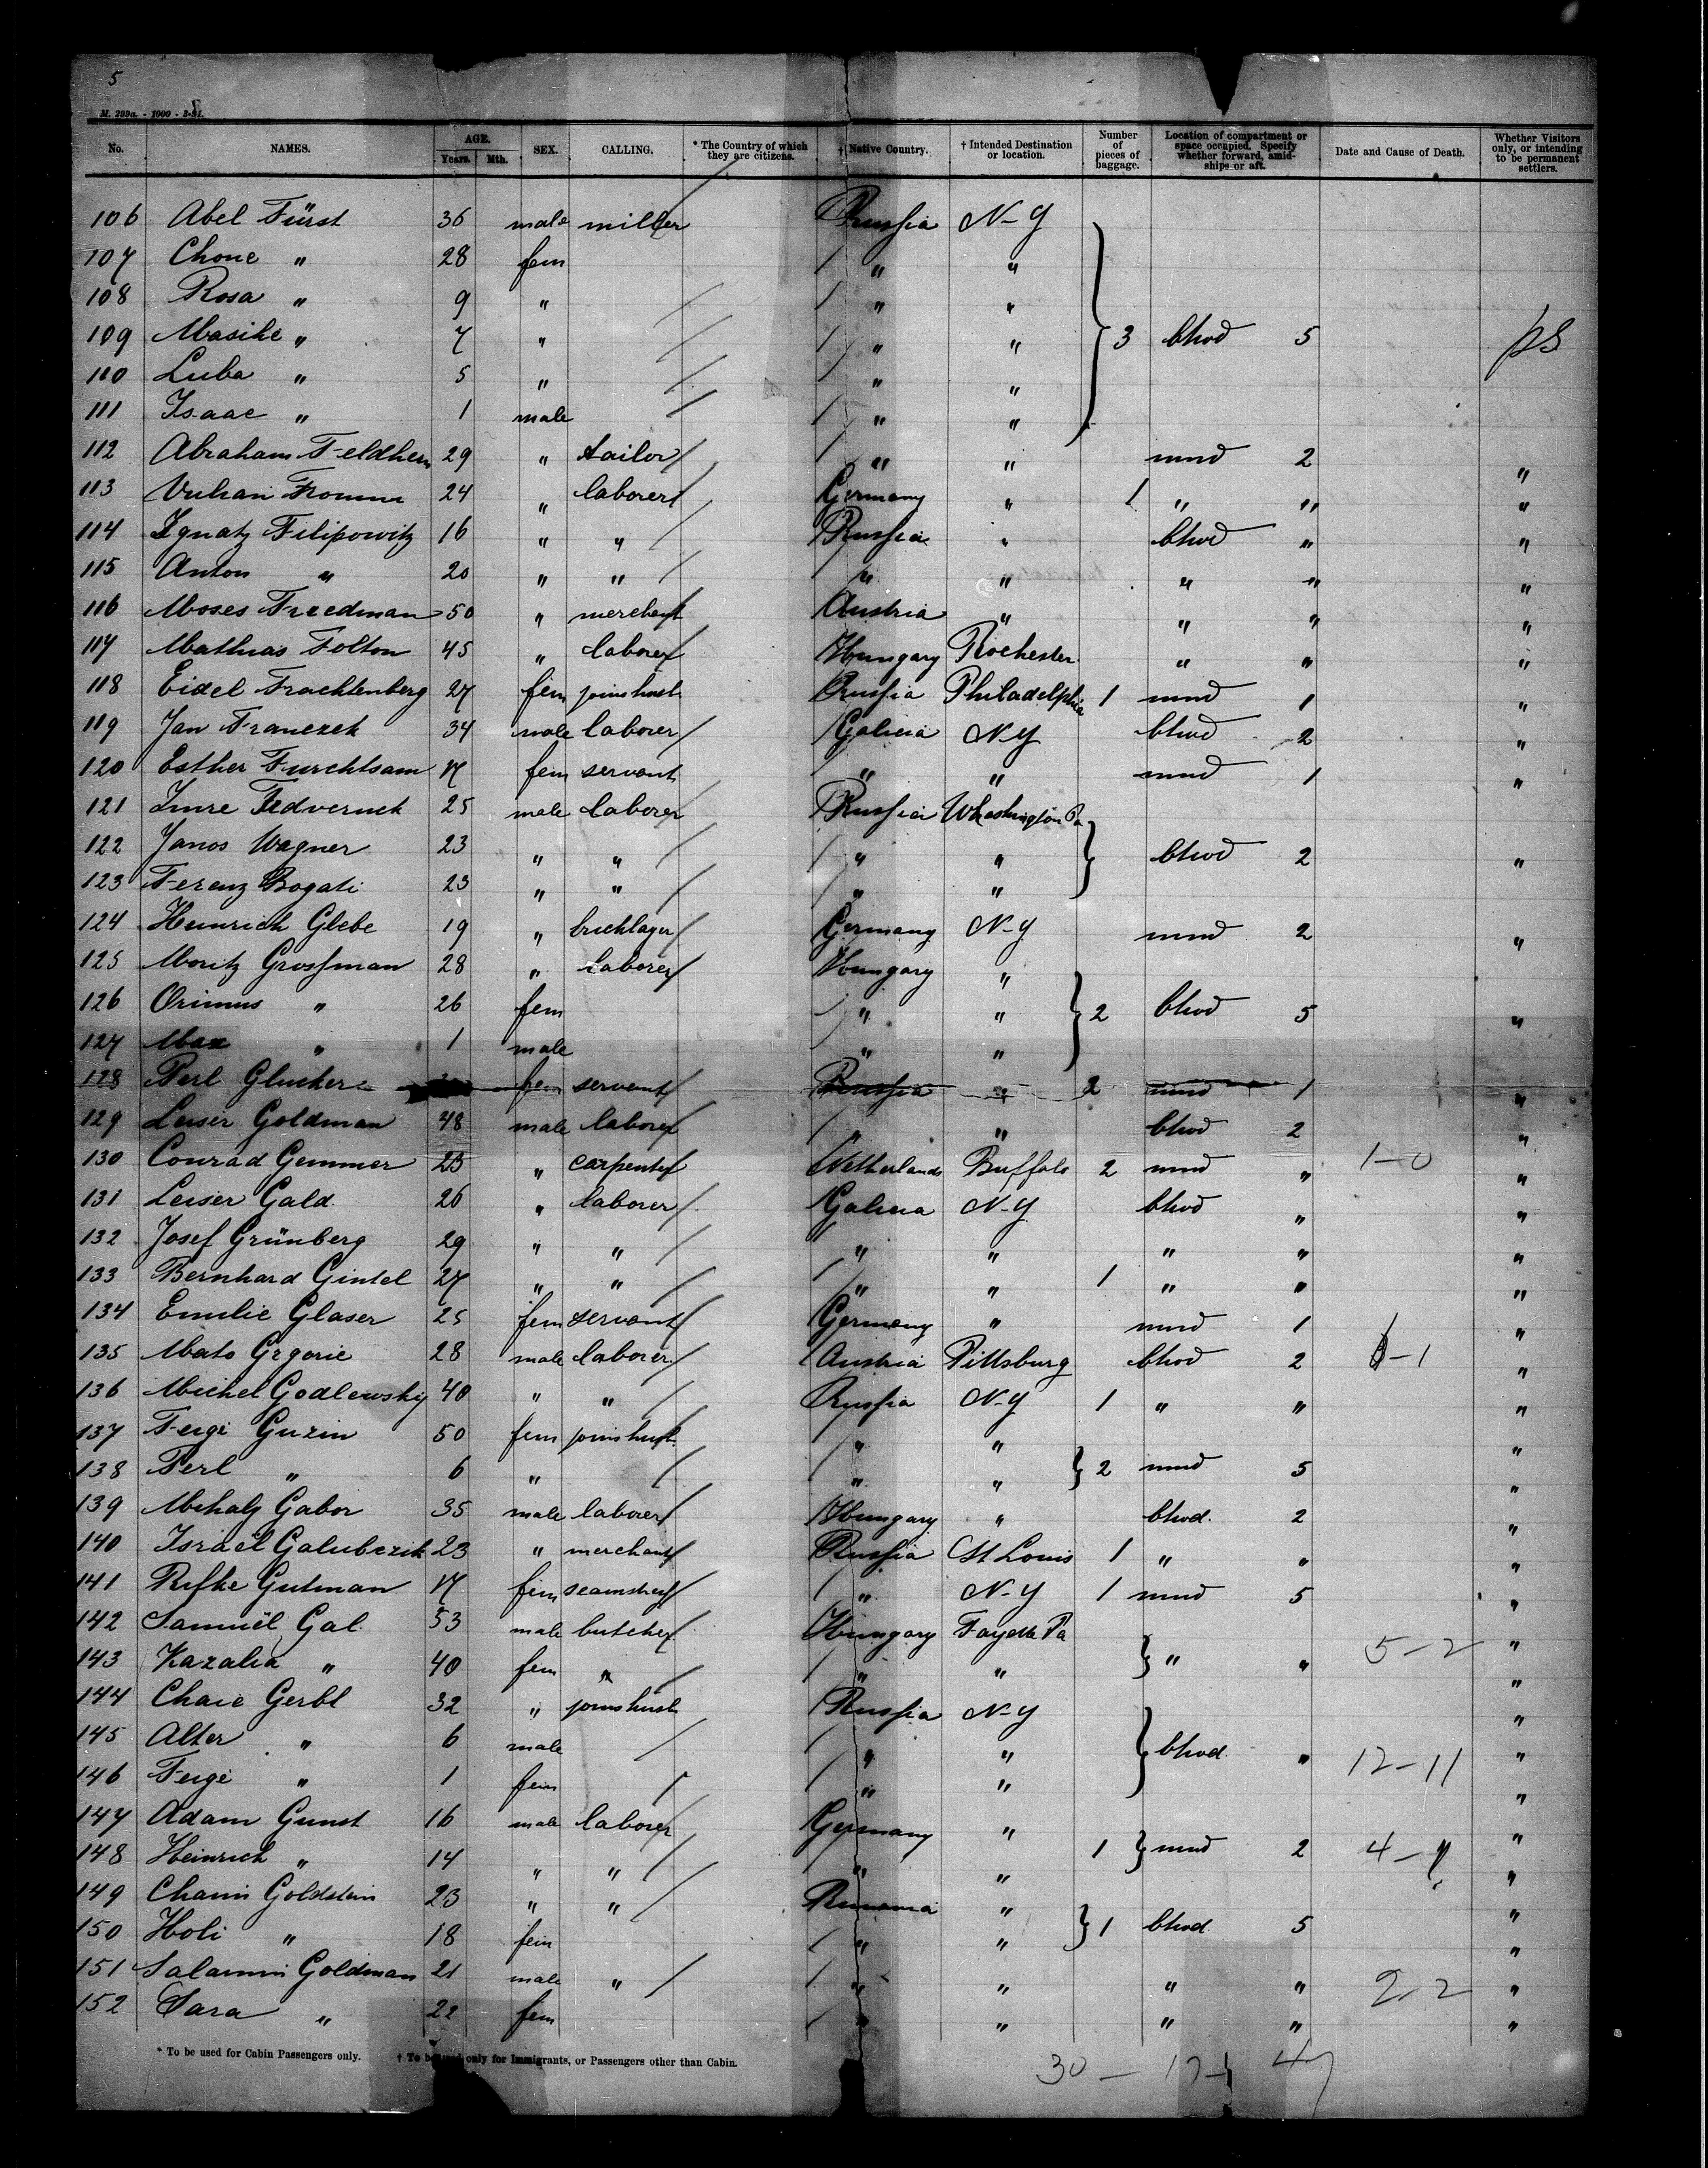 5
M. 299a. - 1000 - 3-91.
No. NAMES. AGE. Years. Mth. SEX. CALLING. * The Country of which they are citizens. † Native Country. † Intended Destination or location. Number of pieces of baggage. Location of compartment or space occupied. Specify whether forward, amidships or aft. Date and Cause of Death. Whether Visitors only, or intending to be permanent settlers.
106 Abel Fürst 36 male miller Russia N-Y
107 Chone " 28 fem " "
108 Rosa " 9 " " "
109 Masihe " 7 " " " 3 bhwd 5 ps
110 Luba " 5 " " "
111 Isaac " 1 male " "
112 Abraham Feldhem 29 " tailor " " mmd 2 "
113 Vulcan Fromm 24 " laborer Germany " 1 " " "
114 Ignatz Filipowitz 16 " " Russia " bhwd " "
115 Anton " 20 " " " " " " "
116 Moses Freedman 50 " merchant Austria " " " "
117 Mathias Folton 45 " laborer Hungary Rochester " " "
118 Eidel Frachtenberg 27 fem joins husb Russia Philadelphia 1 mmd 1 "
119 Jan Franczek 34 male laborer Galicia N-Y bhwd 2 "
120 Esther Furchtsam 17 fem servant " " mmd 1 "
121 Imre Fedvernek 25 male laborer Russia Whashington Pa
122 Janos Wagner 23 " " " " bhwd 2 "
123 Ferenz Bogati 23 " " " "
124 Heinrich Glebe 19 " bricklayer Germany N-Y mmd 2 "
125 Moritz Grossman 28 " laborer Hungary "
126 Orimus " 26 fem " " 2 bhwd 5 "
127 Max " 1 male " "
128 Perl Glucker fem servant Russia " 2 mmd 1 "
129 Leiser Goldman 48 male laborer " " bhwd 2 "
130 Conrad Gemmer 23 " carpenter Netherlands Buffalo 2 mmd " 1-0 "
131 Leiser Gald 26 " laborer Galicia N-Y bhwd " "
132 Josef Grünberg 29 " " " " " " "
133 Bernhard Gintel 27 " " " " 1 " " "
134 Emilie Glaser 25 fem servant Germany " mmd 1 "
135 Mato Grgorie 28 male laborer Austria Pittsburg bhwd 2 -1 "
136 Michel Godlewsky 40 " " Russia N-Y 1 " " "
137 Feige Guzin 50 fem joins husb " " "
138 Perl " 6 " " " 2 mmd 5 "
139 Mihaly Gabor 35 male laborer Hungary " bhwd. 2 "
140 Israel Galubczik 23 " merchant Russia St Louis 1 " " "
141 Rifke Gutman 17 fem seamstress " N-Y 1 mmd 5 "
142 Samuël Gal 53 male butcher Hungary Fayette Pa "
143 Kazalia " 40 fem " " " " " 5-2 "
144 Chaie Gerbl 32 " joins husb Russia N-Y "
145 Alter " 6 male " " bhwd. " 12-11 "
146 Feige " 1 fem " " "
147 Adam Gunst 16 male laborer Germany " "
148 Heinrich " 14 " " " " 1 mmd 2 4- "
149 Chaim Goldstein 23 " " Rumania " "
150 Holi " 18 fem " " 1 bhwd. 5 "
151 Salamin Goldman 21 male " " " " " 2-2 "
152 Sara " 22 fem " " " " "
* To be used for Cabin Passengers only. † To be used only for Immigrants, or Passengers other than Cabin.
30 - 17 47